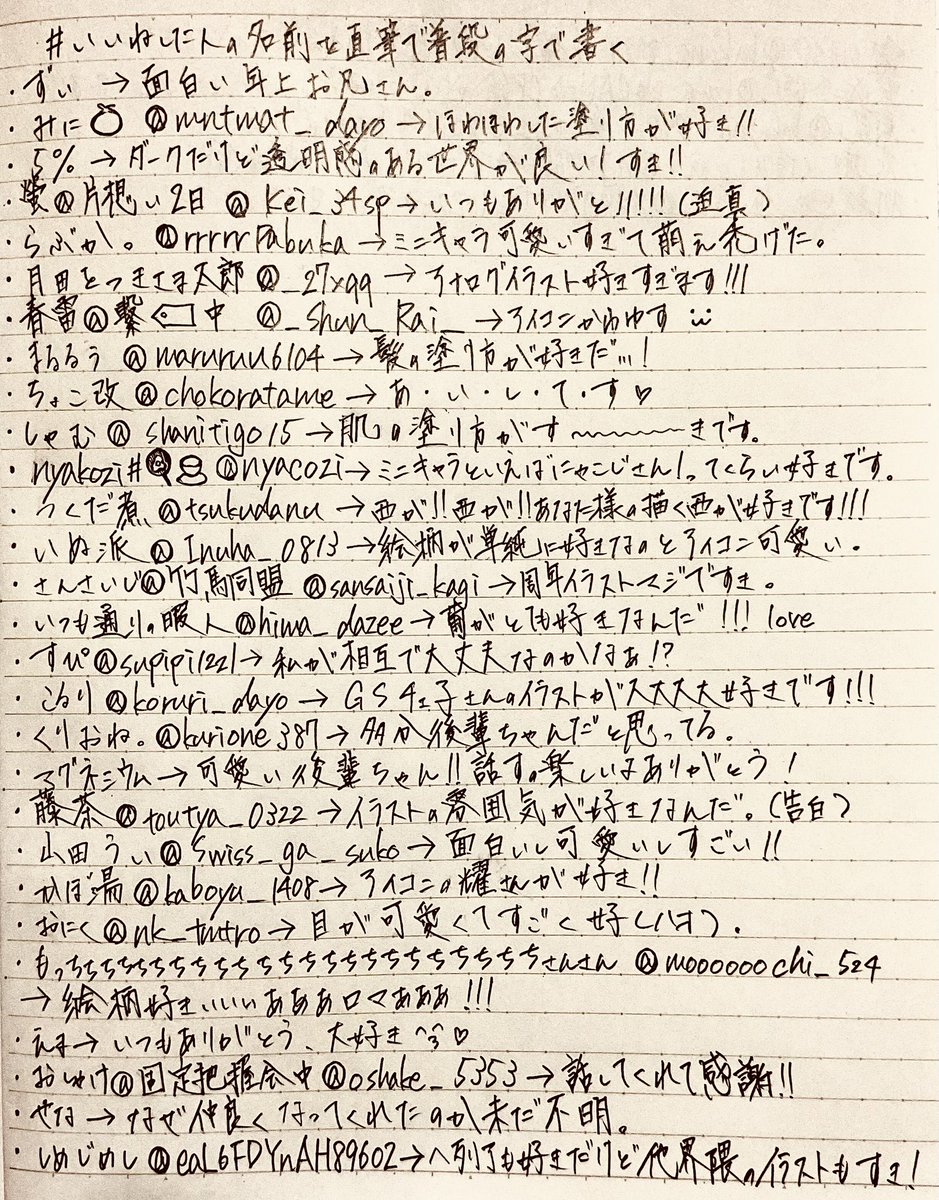 #いいねした人の名前を直筆で普段の字で書く
・ずい → 面白い年上お兄さん。
・みに @mntmat_dayo→ほわほわした塗り方が好き!!
・5% → ダークだけど透明感のある世界が良い!すき!!
・蛍@片想い2日 @Kei_34sp→いつもありがと!!!!!(迫真)
・らぶか。@rrrrrabuka→ミニキャラ可愛いすぎて萌え禿げた。
・月田とつきさま太郎@_27x99 →アナログイラスト好きすぎます!!!
・春雷@繋 中 @_Shun_Rai_ →アイコンかわゆす
・まるるぅ @maruruu6104→髪の塗り方が好きだ…!
・ちょこ改 @chokoratame→ あ・い・し・て・す♡
・しゃむ@ shanitigo15→肌の塗り方がす〜〜〜きです。
・nyakozi# @nyacozi→ミニキャラといえばにゃこじさん!ってくらい好きです。
・つくだ煮 @tsukudanu →西が!!西が!!あなた様の描く西が好きです!!!
・いぬ派 @Inuha_0813→絵柄が単純に好きなのとアイコン可愛い。
・さんさいじ@竹馬同盟 @sansaiji_kagi→周年イラストマジですき。
・いつも通りの暇人@hima_dazee→ がとても好きなんだ!!! love
・すぴ@supipi1221→ 私が相互で大丈夫なのかなぁ!?
・こるり@koruri_dayo→ GSチェ子さんのイラストが大大大大好きです!!!
・くりおね。@kurione387→ 後輩ちゃんだと思ってる。
・マグネシウム→可愛い後輩ちゃん!!話すの楽しいよありがとう!
・藤茶@toutya_0322→イラストの雰囲気が好きなんだ。(告白)
・山田うぃ@Swiss_ga_suko→面白いし可愛いしすごい!!
・かぼ湯@kaboyu_1408→アイコンの耀さんが好き!!
・おにく@nk_tmtro→目が可愛くてすごく好( )。
・もっちちちちちちちちちちちちちちちちちちちちちさんさん @moooooochi_524
→絵柄好きいいいあああロマあああ!!!
・えま→いつもありがとう、大好き♡
・おしゃけ@固定把握会中@oshake_5353→話してくれて感謝!!
・せな→なぜ仲良くなってくれたのか未だ不明。
・しめじめし@eaL6FDYnAH89602→ヘタリアも好きだけど他界隈のイラストもすき!